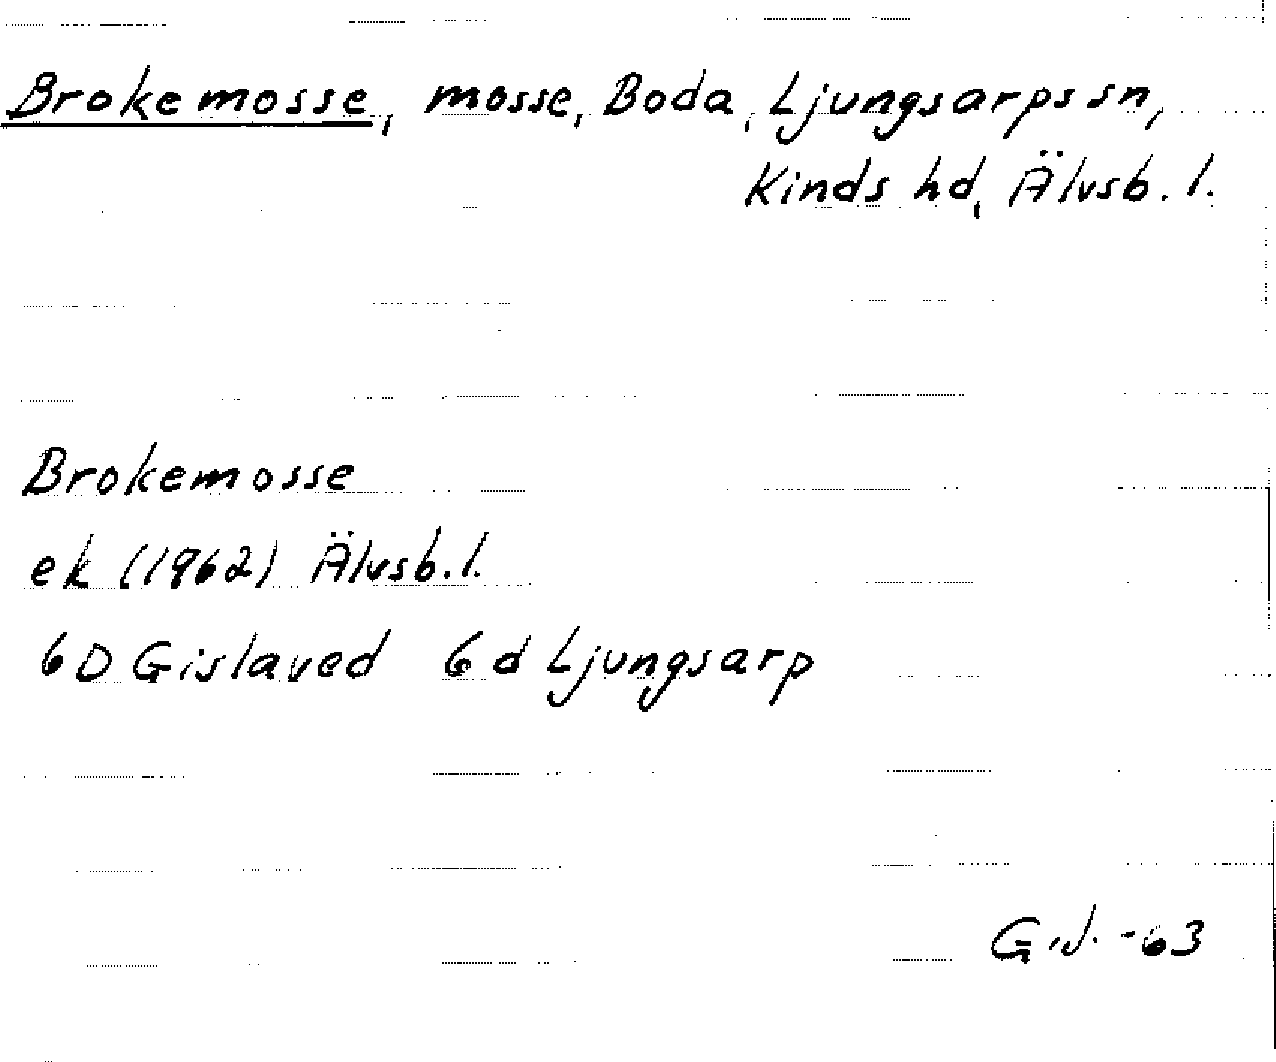 Brokemosse, mosse, Boda, Ljungsarps sn,
Kinds hd, Älvsb. l.
Brokemosse
ek (1962) Älvsb. l.
6D Gislaved 6d Ljungsarp
G.J. -63